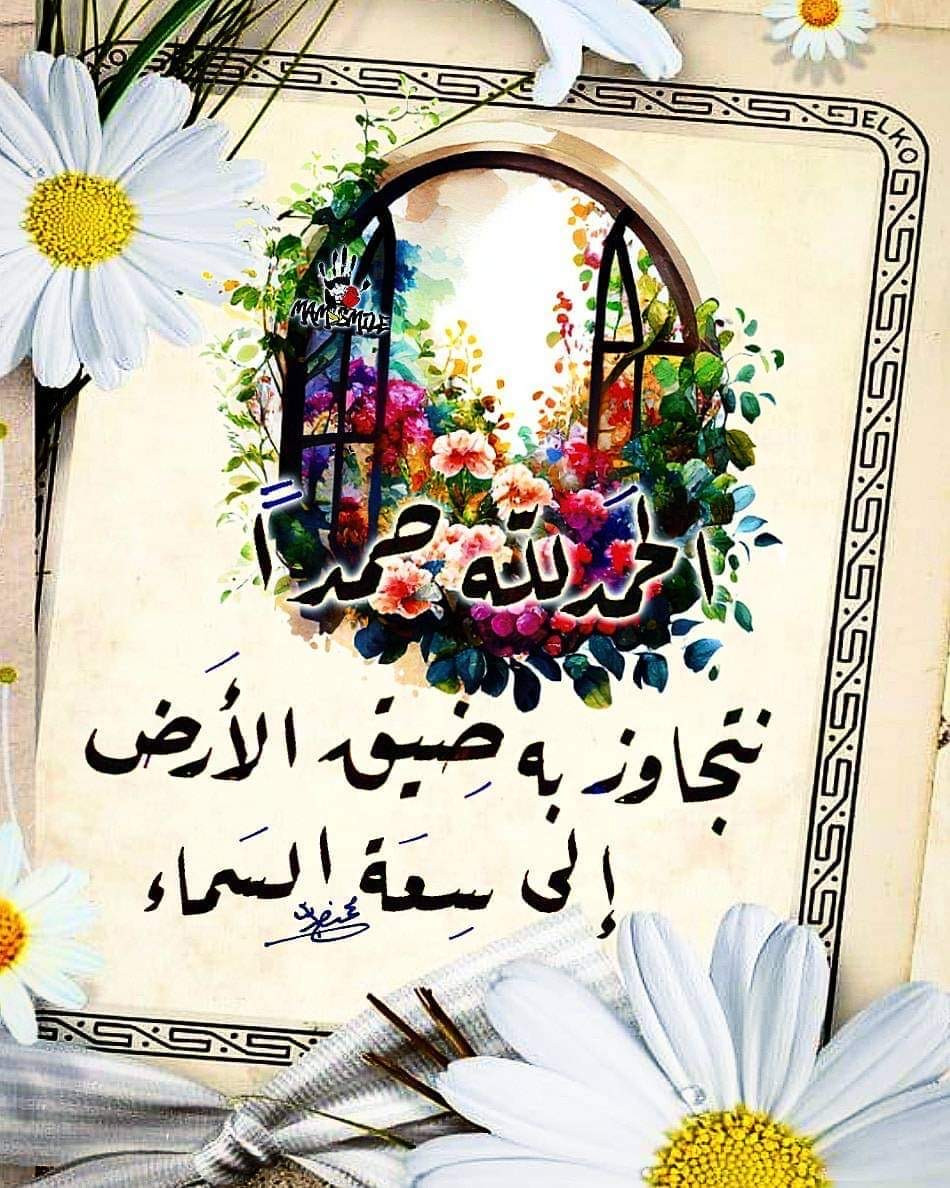 ELKO
MAMSMILE
الحمَد لله حمداً
نتجاوز به ضِيق الأَرض
إلى سِعَة السَماء